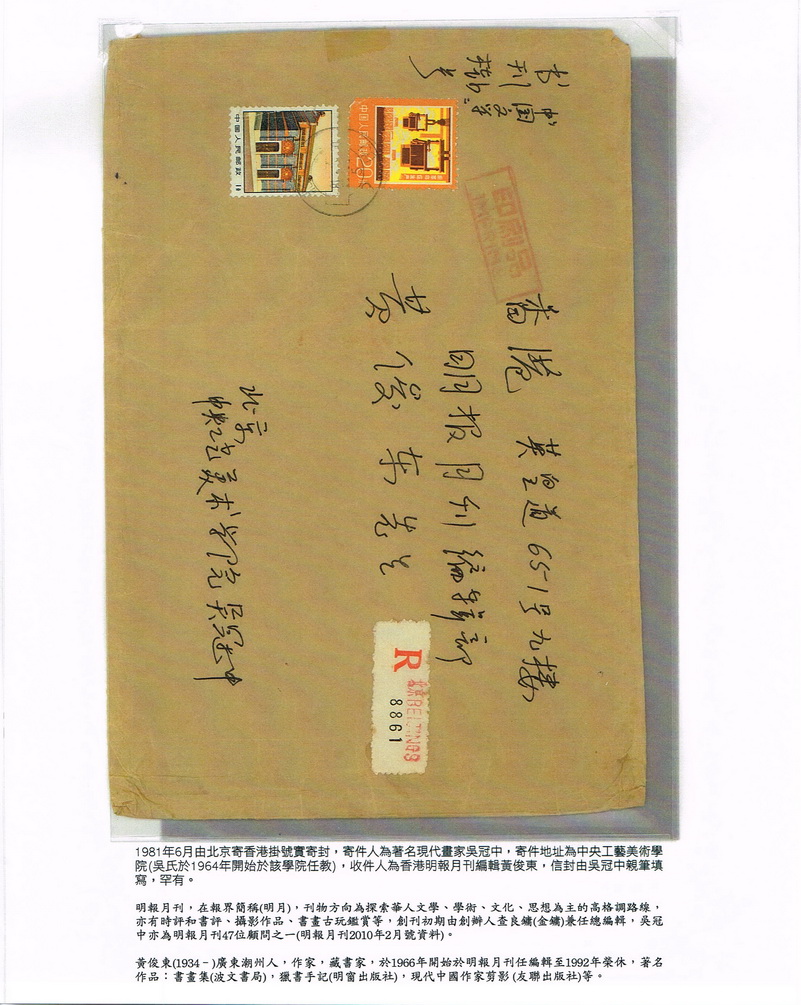 书刊
中国
中国人民邮政
中国人民邮政
20分
印刷品
香港 英皇道651号九楼
明报月刊编辑部
黄俊东先生
北京
中央工艺美术学院吴冠中
R
BEIJING
8861
1981年6月由北京寄香港掛號實寄封，寄件人為著名現代畫家吳冠中，寄件地址為中央工藝美術學
院(吳氏於1964年開始於該學院任教)，收件人為香港明報月刊編輯黃俊東，信封由吳冠中親筆填
寫，罕有。
明報月刊，在報界簡稱(明月)，刊物方向為探索華人文學、學術、文化、思想為主的高格調路線，
亦有時評和書評、攝影作品、書畫古玩鑑賞等，創刊初期由創辦人查良鏞(金鏞)兼任總編輯，吳冠
中亦為明報月刊47位顧問之一(明報月刊2010年2月號資料)。
黃俊東(1934–)廣東潮州人，作家，藏書家，於1966年開始於明報月刊任編輯至1992年榮休，著名
作品：書畫集(波文書局)，獵書手記(明窗出版社)，現代中國作家剪影 (友聯出版社)等。